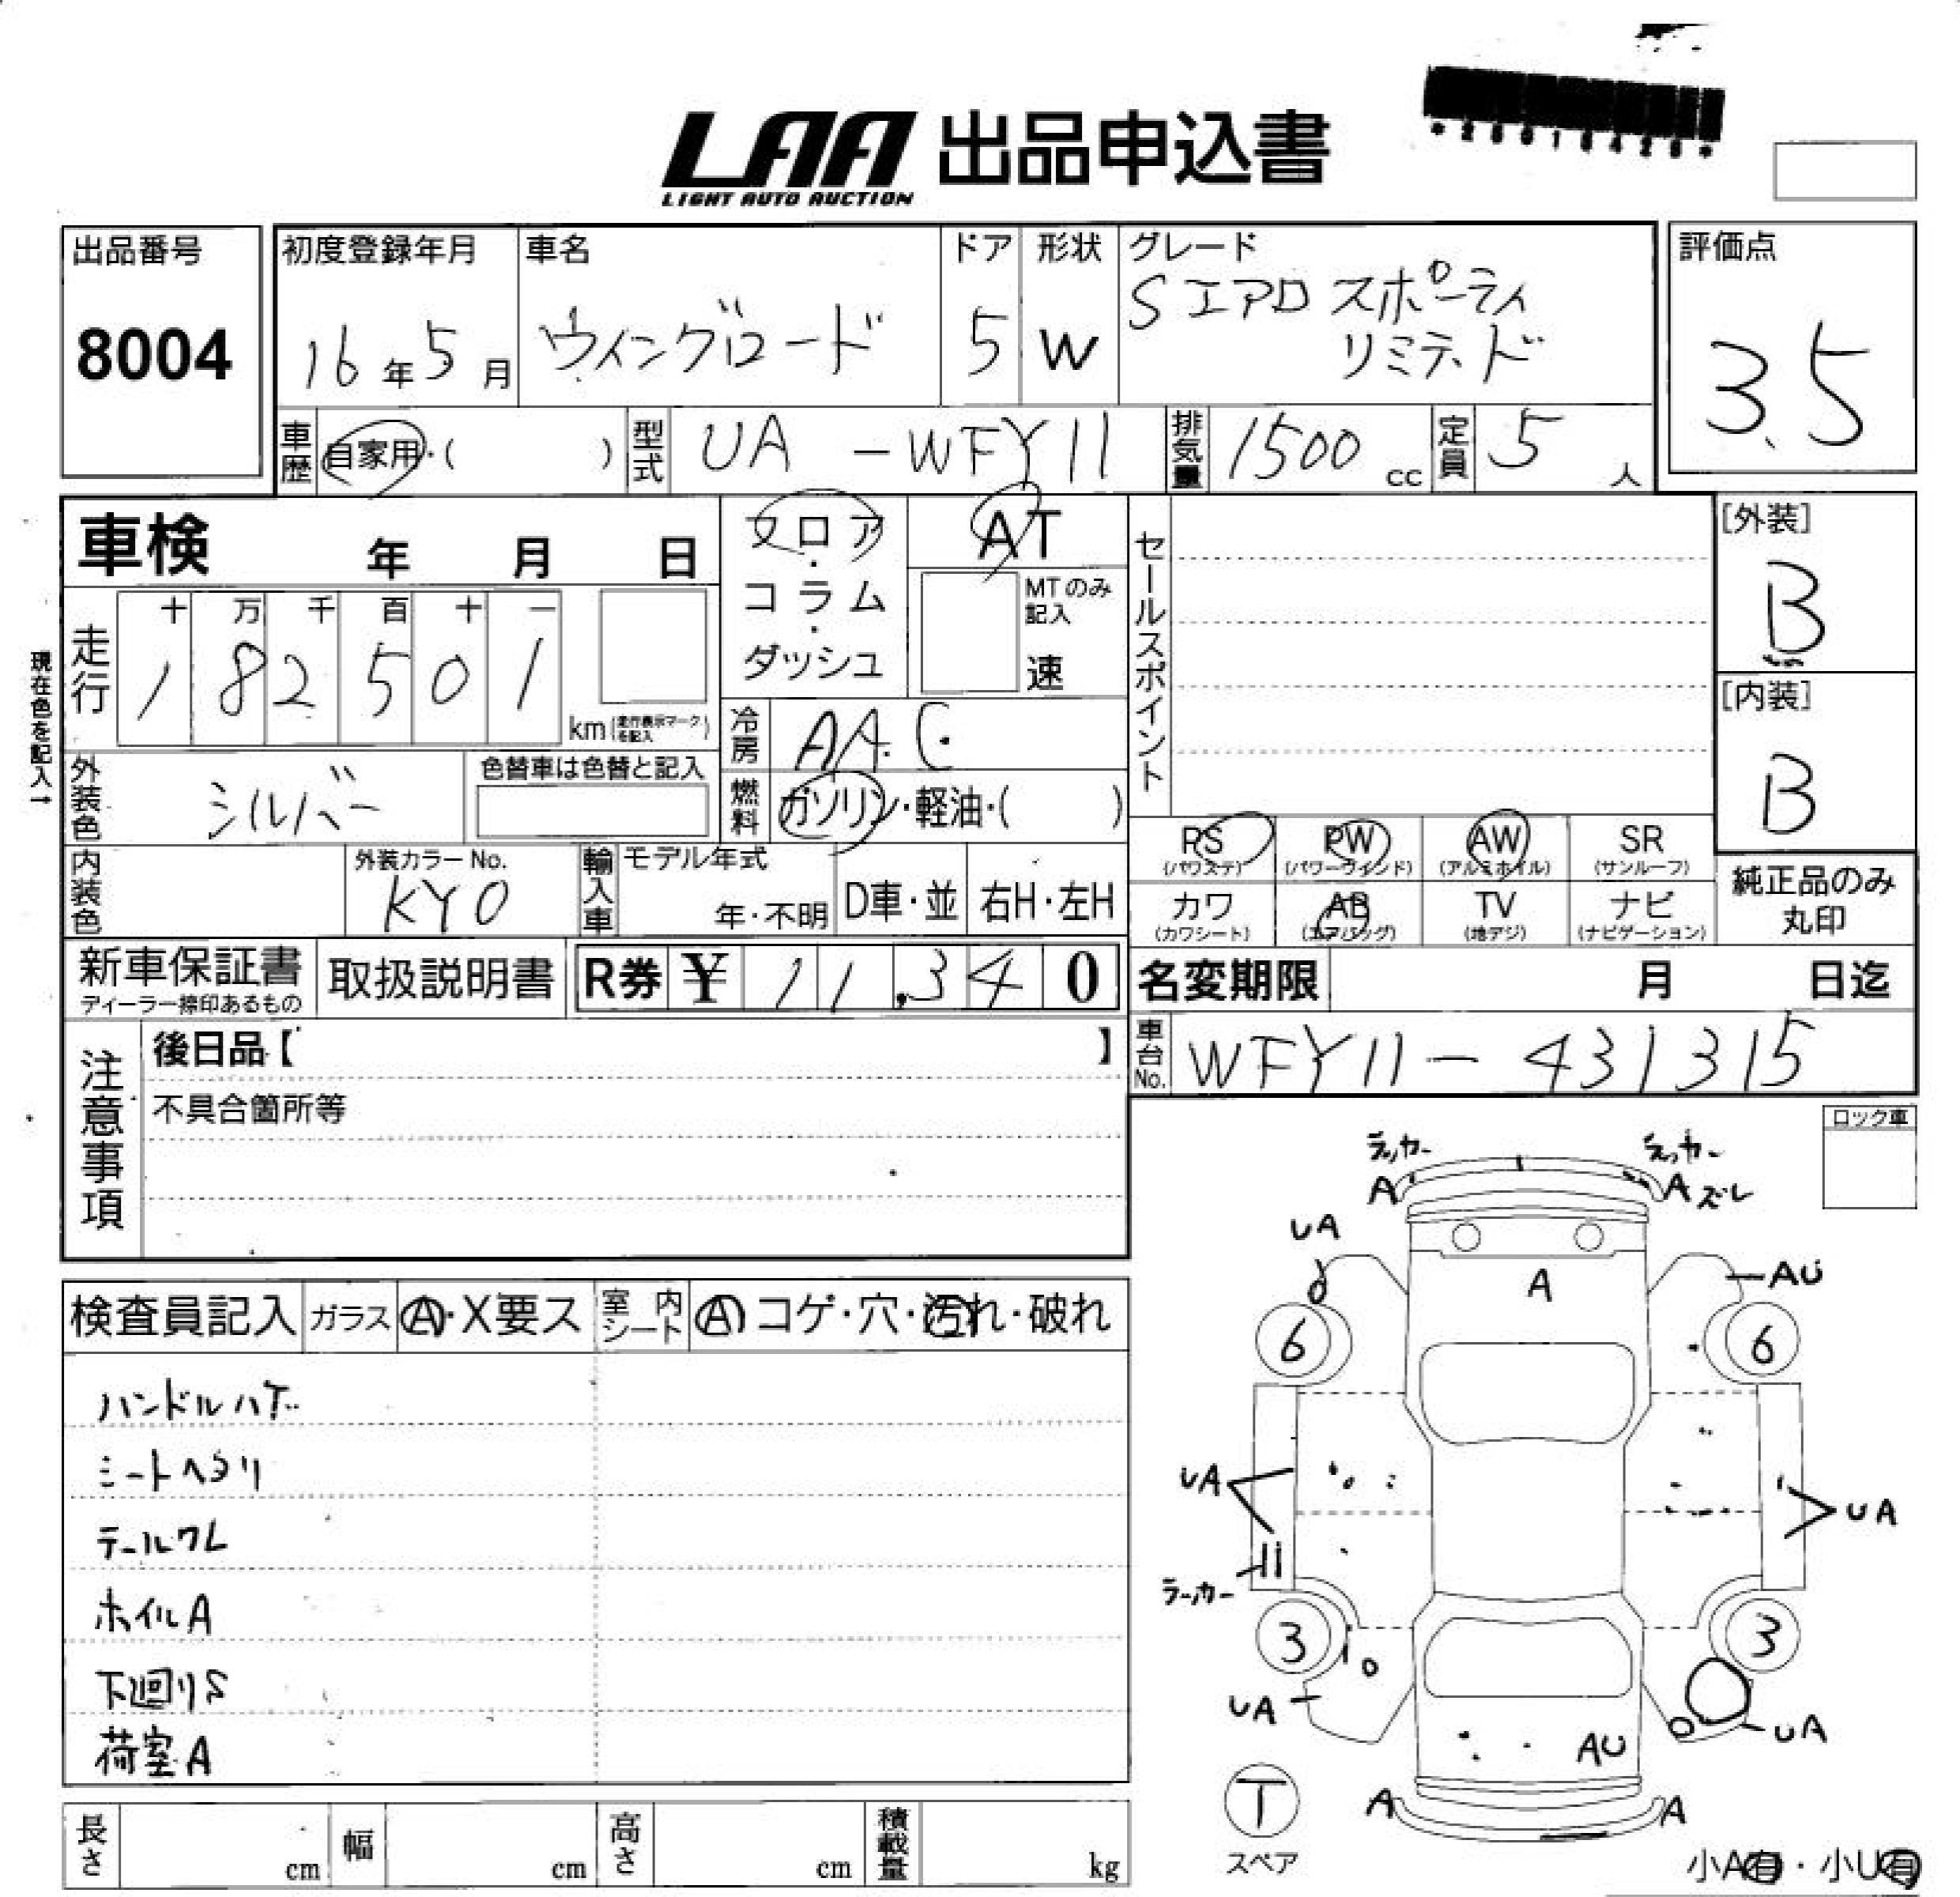 LAA 出品申込書
LIGHT AUTO AUCTION
出品番号
8004
初度登録年月
16年5月
車名
ウイングロード
ドア
5
形状
W
グレード
Sエアロ スポーティ
リミテッド
評価点
3.5
車歴
自家用・( )
型式
UA -WFY11
排気量
1500 cc
定員
5 人
車検 年 月 日
フロア・コラム・ダッシュ
AT
MTのみ記入
速
セールスポイント
[外装]
B
[内装]
B
現在色を記入→
走行
十 万 千 百 十 一
1 8 2 5 0 1
km(走行表示マークを記入)
冷房
AAC
外装色
シルバー
色替車は色替と記入
燃料
ガソリン・軽油・( )
内装色
外装カラーNo.
KY0
輸入車
モデル年式
年・不明
D車・並
右H・左H
PS
(パワステ)
PW
(パワーウィンド)
AW
(アルミホイル)
SR
(サンルーフ)
カワ
(カワシート)
AB
(エアバッグ)
TV
(地デジ)
ナビ
(ナビゲーション)
純正品のみ
丸印
新車保証書
ディーラー捺印あるもの
取扱説明書
R券 ¥ 11,340
名変期限 月 日迄
車台No.
WFY11-431315
注意事項
後日品【 】
不具合箇所等
ロック車
検査員記入
ガラス
A・X要ス
室内シート
A コゲ・穴・汚れ・破れ
ハンドルハゲ
シートヘタリ
テールワレ
ホイルA
下廻りS
荷室A
A
A ズレ
UA
AU
A
6
6
UA
UA
3
3
UA
UA
AU
T
スペア
A
A
小A有・小U有
長さ cm
幅 cm
高さ cm
積載量 kg